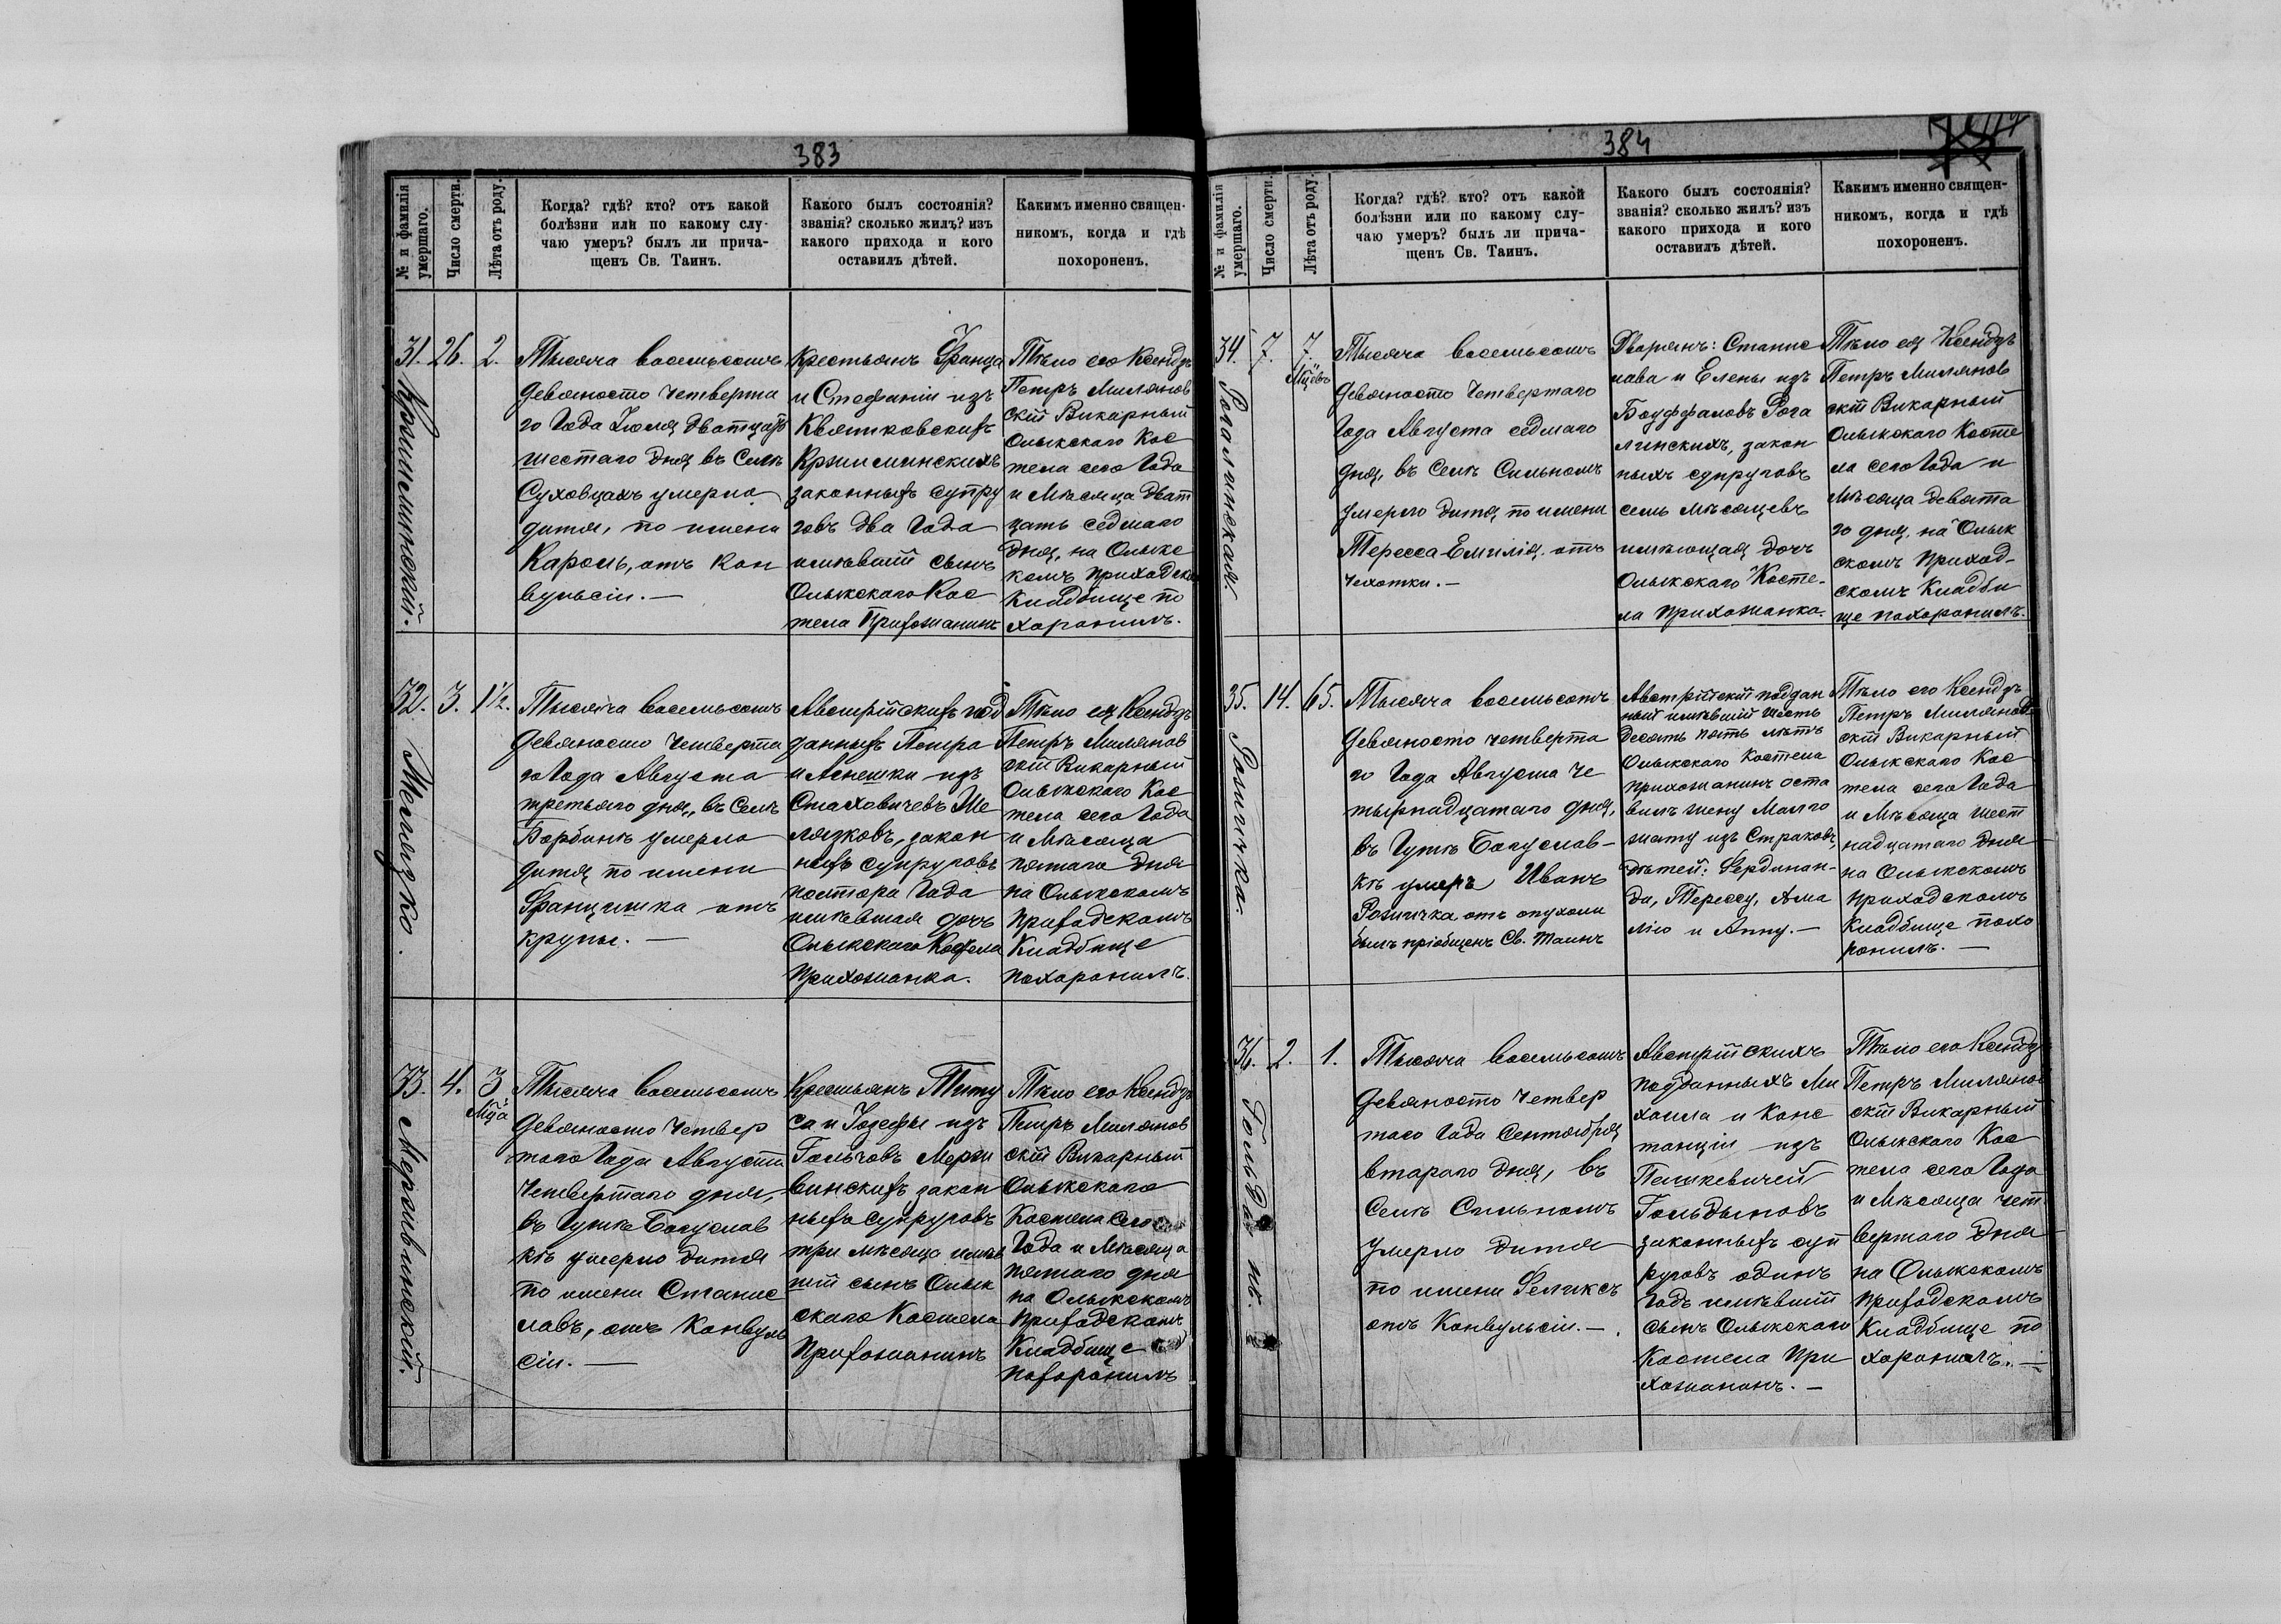 383
№ и фамилія умершаго.
Число смерти.
Лѣта отъ роду.
Когда? гдѣ? кто? отъ какой
болѣзни или по какому слу-
чаю умеръ? былъ ли прича-
щенъ Св. Таинъ.
Какого былъ состоянія?
званія? сколько жилъ? изъ
какого прихода и кого
оставилъ дѣтей.
Какимъ именно священ-
никомъ, когда и гдѣ
похороненъ.
31. 26. 2.
Тысяча восемьсотъ
девяносто четверта
го Года Іюля дватцать
шестаго дня въ Селѣ
Суховцахъ умерло
дитя, по имени
Кароль, отъ Кон
вульсіи. —
Крестьянъ Франца
и Стефаніи изъ
Квятковскихъ
законныхъ супру
говъ два Года
имѣвшій сынъ
Олыкскаго Кос
тела Прихожанинъ
Тѣло его Ксендзъ
Петръ Милянов
скій Викарный
Олыкскаго Кос
тела сего Года
и Мѣсяца дват
цать седмаго
дня, на Олыкс
комъ приходско
Кладбище по
хоронилъ.
32. 3. 1½.
Тысяча восемьсотъ
девяносто четверта
го Года Августа
третьяго дня, въ Селѣ
умерло
дитя по имени
Францишка отъ
крупы. —
Австрійскихъ под
данныхъ Петра
и Агнешки изъ
Стаховичевъ Ше
лязковъ, закон
ныхъ супруговъ
полтора Года
имѣвшая дочь
Олыкскаго Костела
Прихожанка.
Тѣло ея Ксендзъ
Петръ Милянов
скій Викарный
Олыкскаго Кос
тела сего Года
и Мѣсяца
пятаго дня
на Олыкскомъ
Приходскомъ
Кладбище
похоронилъ.
33. 4. 3 Мца
Тысяча восемьсотъ
девяносто четвер
таго Года Августа
четвертаго дня,
въ Гутѣ Богуслав
кѣ умерло дитя
по имени Станис
лавъ, отъ Конвуль
сіи. —
Крестьянъ Титу
са и Іозефы изъ
законъ
ныхъ супруговъ
три мѣсяца имѣв
шій сынъ Олык
скаго Костела
Прихожанинъ
Тѣло его Ксендзъ
Петръ Милянов
скій Викарный
Олыкскаго
Костела сего
Года и Мѣсяца
пятаго дня
на Олыкскомъ
Приходскомъ
Кладбище
похоронилъ
384
№ и фамилія умершаго.
Число смерти.
Лѣта отъ роду.
Когда? гдѣ? кто? отъ какой
болѣзни или по какому слу-
чаю умеръ? былъ ли прича-
щенъ Св. Таинъ.
Какого былъ состоянія?
званія? сколько жилъ? изъ
какого прихода и кого
оставилъ дѣтей.
Какимъ именно священ-
никомъ, когда и гдѣ
похороненъ.
34. 7. 7. Мцевъ
Рогалинская.
Тысяча восемьсотъ
девяносто четвертаго
Года Августа седмаго
дня, въ Селѣ Сильномъ
умерло дитя по имени
Тересса-Емилія отъ
чехотки. —
Дворянъ: Станис
лава и Елены изъ
Боуффаловъ Рога
линскихъ, закон
ныхъ супруговъ
семь мѣсяцевъ
имѣющая дочь
Олыкскаго Косте-
ла прихожанка.
Тѣло ея Ксендзъ
Петръ Милянов
скій Викарный
Олыкскаго Косте
ла сего Года и
Мѣсяца девята
го дня, на Олык
скомъ Приход-
скомъ Кладби
ще похоронилъ.
35. 14. 65.
Рожичка.
Тысяча восемьсотъ
девяносто четверта
го Года Августа че
тырнадцатаго дня,
въ Гутѣ Богуслав-
кѣ умеръ Иванъ
Рожичка отъ опухоли
былъ пріобщенъ Св. Таинъ
Австрійскій поддан
ный имѣвшій шесть
десять пять лѣтъ
Олыкскаго Костела
прихожанинъ оста
вилъ жену Малго
жату изъ Страховъ,
дѣтей: Фердинан-
да, Терессу, Ама
лію и Анну. —
Тѣло его Ксендзъ
Петръ Милянов
скій Викарный
Олыкскаго Кос
тела сего Года
и Мѣсяца шест
надцатаго дня
на Олыкскомъ
приходскомъ
Кладбище похо
ронилъ. —
36. 2. 1.
Тысяча восемьсотъ
девяносто четвер
таго Года Сентября
втараго дня, въ
Селѣ Сильномъ
умерло дитя
по имени Феликсъ
отъ Конвульсіи. —
Австрійскихъ
подданныхъ Ми
хаила и Конс
танціи изъ
Пешкевичей
Гольдыновъ
законныхъ суп
руговъ одинъ
Годъ имѣвшій
сынъ Олыкскаго
Костела При
хожанинъ. —
Тѣло его Ксендзъ
Петръ Милянов
скій Викарный
Олыкскаго Кос
тела сего Года
и Мѣсяца чет
вертаго дня
на Олыкскомъ
приходскомъ
Кладбище по
хоронилъ. —